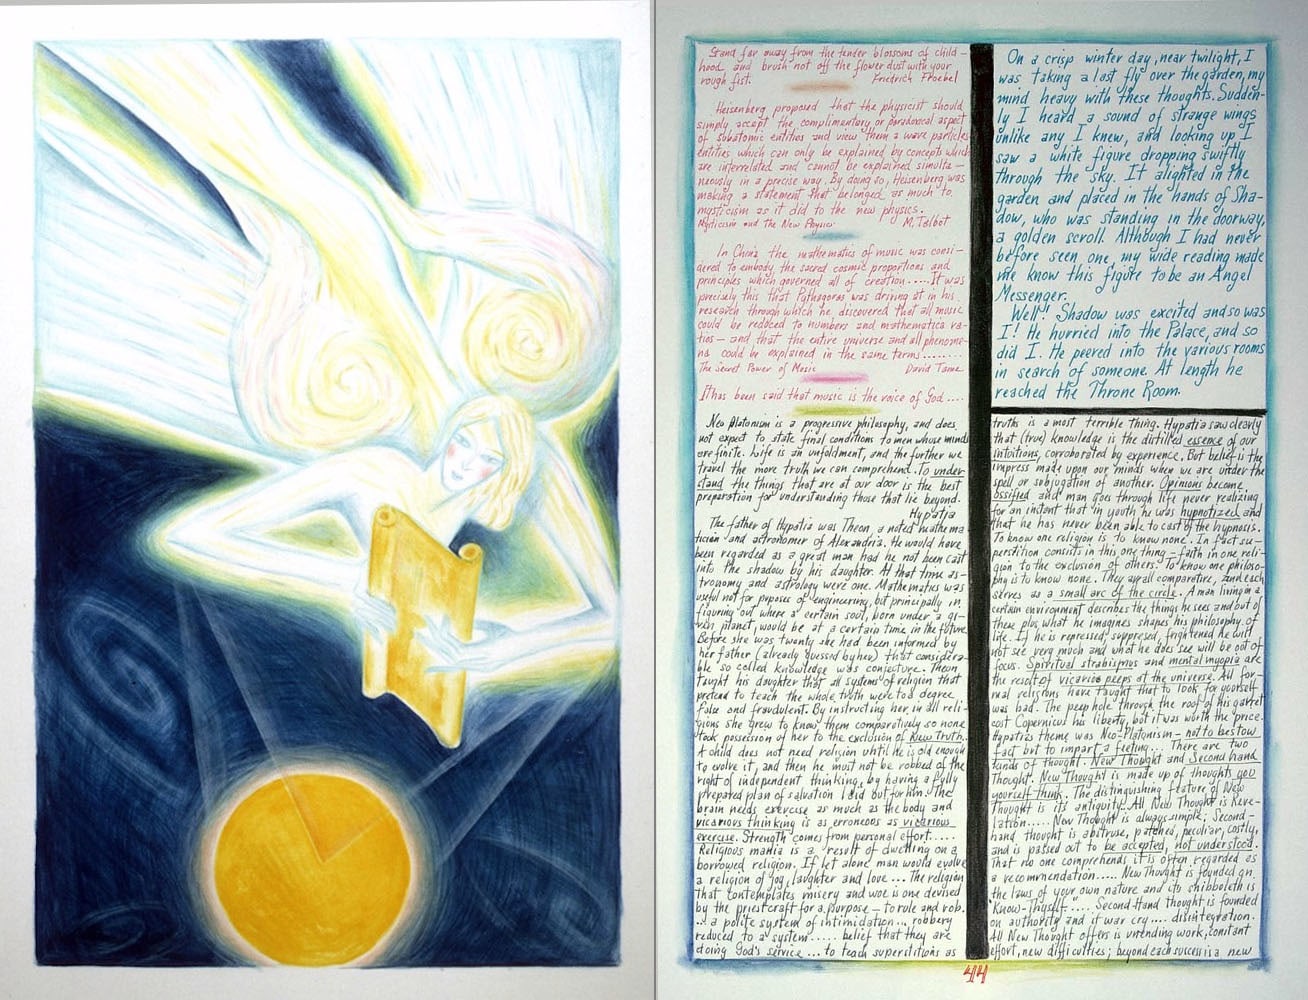 Stand far away from the tender blossoms of child-
hood and brush not off the flower dust with your
rough fist. Friedrich Froebel
Heisenberg proposed that the physicist should
simply accept the complimentary or paradoxical aspect
of subatomic entities and view them a wave particles
entities which can only be explained by concepts which
are interrelated and cannot be explained simulta-
neously in a precise way. By doing so, Heisenberg was
making a statement that belonged as much to
mysticism as it did to the new physics.
Mysticism and the New Physics M. Talbot
In China the mathematics of music was consi-
dered to embody the sacred cosmic proportions and
principles which governed all of creation.....It was
precisely this that Pythagoras was driving at in his
research through which he discovered that all music
could be reduced to numbers and mathematica ra-
tios - and that the entire universe and all phenome-
na could be explained in the same terms........
The Secret Power of Music David Tame
It has been said that music is the voice of God....
Neo platonism is a progressive philosophy, and does
not expect to state final conditions to men whose minds
are finite. Life is an unfoldment, and the further we
travel the more truth we can comprehend. To under-
stand the things that are at our door is the best
preparation for understanding those that lie beyond.
Hypatia
The father of Hypatia was Theon, a noted mathema
tician and astronomer of Alexandria. He would have
been regarded as a great man had he not been cast
into the shadow by his daughter. At that time as-
tronomy and astrology were one. Mathematics was
useful not for puposes of engineering, but principally in
figuring out where a certain soul, born under a gi-
ven planet, would be at a certain time in the future.
Before she was twenty she had been informed by
her father (already guessed by her) that considera-
ble so called knowledge was conjecture. Theon
taught his daughter that all systems of religion that
pretend to teach the whole truth were to a degree
false and fraudulent. By instructing her in all reli-
gions she grew to know them comparatively so none
took possesion of her to the exclusion of New Truth.
A child does not need religion until he is old enough
to evolve it, and then he must not be robbed of the
right of independent thinking, by having a fully
prepared plan of salvation   but for him. The
brain needs exercise as much as the body and
vicarious thinking is as erroneous as vicarious
exercise. Strength comes from personal effort.....
Religious mania is a result of dwelling on a
borrowed religion. If let alone man would evolve
a religion of joy, laughter and love... The religion
that contemplates misery and woe is one devised
by the priestcraft for a purpose - to rule and rob.
... a polite system of intimidation... robbery
reduced to a system..... belief that they are
doing God's service... to teach superstitions as
On a crisp winter day, near twilight, I
was taking a last fly over the garden, my
mind heavy with these thoughts. Sudden-
ly I heard a sound of strange wings
unlike any I knew, and looking up I
saw a white figure dropping swiftly
through the sky. It alighted in the
garden and placed in the hands of Sha-
dow, who was standing in the doorway,
a golden scroll. Although I had never
before seen one, my wide reading made
me know this figure to be an Angel
Messenger.
Well! Shadow was excited and so was
I! He hurried into the Palace, and so
did I. He peered into the various rooms
in search of someone. At length he
reached the Throne Room.
truths is a most terrible thing. Hypatia saw clearly
that (true) knowledge is the distilled essence of our
intuitions, corroborated by experience. But belief is the
impress made upon our minds when we are under the
spell or subjugation of another. Opinions become
ossified and man goes through life never realizing
for an instant that in youth he was hypnotized and
that he has never been able to cast of the hypnosis.
To know one religion is to know none. In fact su-
perstition consists in this one thing - faith in one reli-
gion to the exclusion of others. To know one philoso-
phy is to know none. They are all comparative, and each
serves as a small arc of the circle. A man living in a
certain environment describes the things he sees and out of
these plus what he imagines shapes his philosophy of
life. If he is repressed, suppresed, frightened he will
not see very much and what he does see will be out of
focus. Spiritual strabismos and mental myopia are
the result of vicarios peeps at the universe. All for-
mal religions have taught that to look for yourself
was bad. The peep hole through the roof of his garret
cost Copernicus his liberty, but it was worth the price.
Hypatias theme was Neo-Platonism - not to bestow
fact but to impart a feeling... There are two
kinds of thought. New Thought and Second hand
Thought. New Thought is made up of thoughts you
yourself think. The distinguishing feature of New
Thought is its antiquity. All New Thought is Reve-
lation..... New Thought is always simple; Second-
hand thought is abstruse, patched, peculiar, costly,
and is passed out to be accepted, not understood.
That no one comprehends it is often regarded as
a recommendation..... New Thought is founded on
the laws of your own nature and its shibboleth is
"Know-Thyself".... Second Hand thought is founded
on authority and it war cry.... disintegration.
All New Thought offers is unending work, constant
effort, new difficulties; beyond each success is a new
44